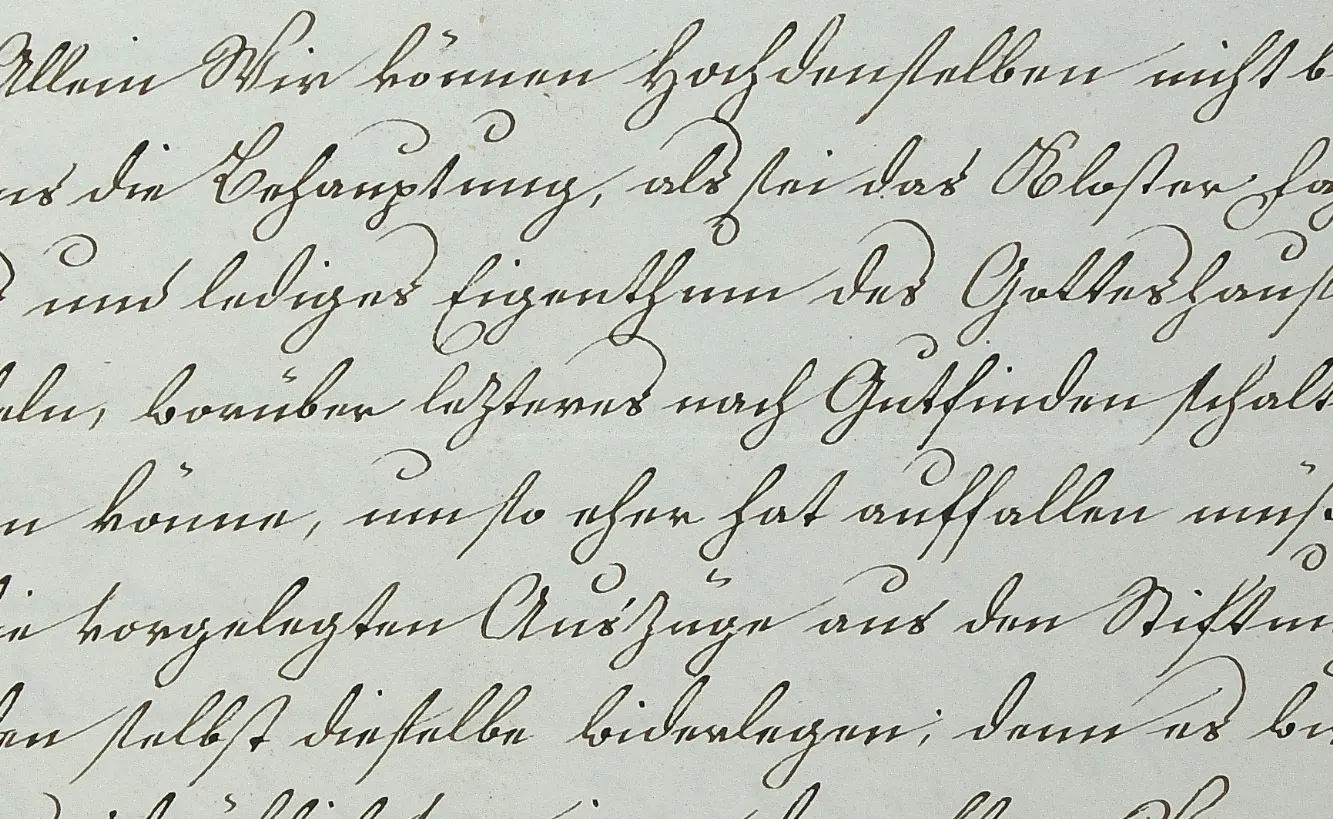 Allein Wir können Hochdenselben nicht b
ns die Behauptung, als sei das Kloster Fa
s und lediges Eigenthum des Gotteshaus
eln, worüber lezteres nach Gutfinden schalt
n könne, um so eher hat auffallen müß
ie vorgelegten Auszüge aus den Stiftun
den selbst dieselbe widerlegen; denn es wi